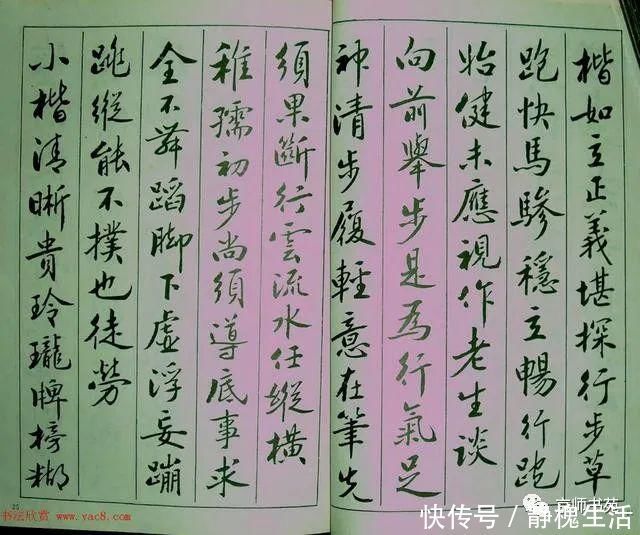 楷如立正義堪探行步草
跑快馬驂穩立暢行跑
始健未應視作老生談
向前舉步是為行氣足
神清步履輕意在筆先
須果斷行雲流水任縱橫
稚孺初步尚須導底事求
全不舞蹈脚下虛浮妄蹦
跳縱能不撲也徒勞
小楷清晰貴玲瓏牌榜糊
25
书法欣赏 www.yac8.com
京师书苑
快传号/静槐生活